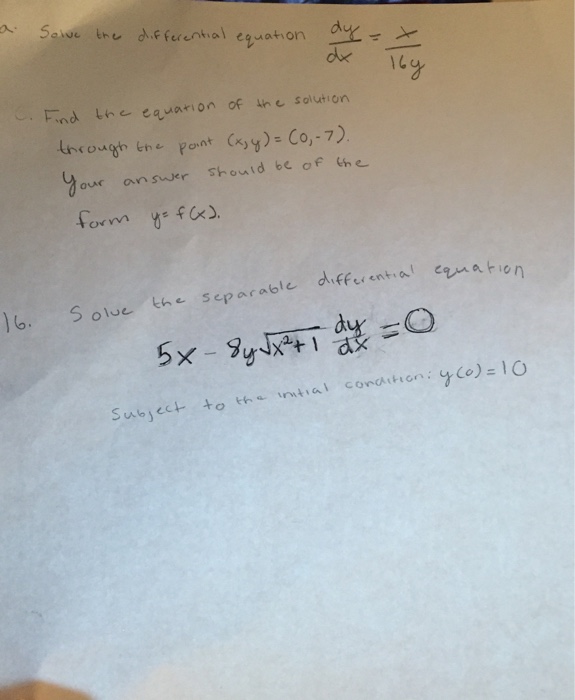 a. Solve the differential equation dy/dx = x/16y
Find the equation of the solution
through the point (x,y) = (0,-7).
Your answer should be of the
form y = f(x).
16. Solve the separable differential equation
5x - 8y√x²+1 dy/dx = 0
Subject to the initial condition: y(0) = 10